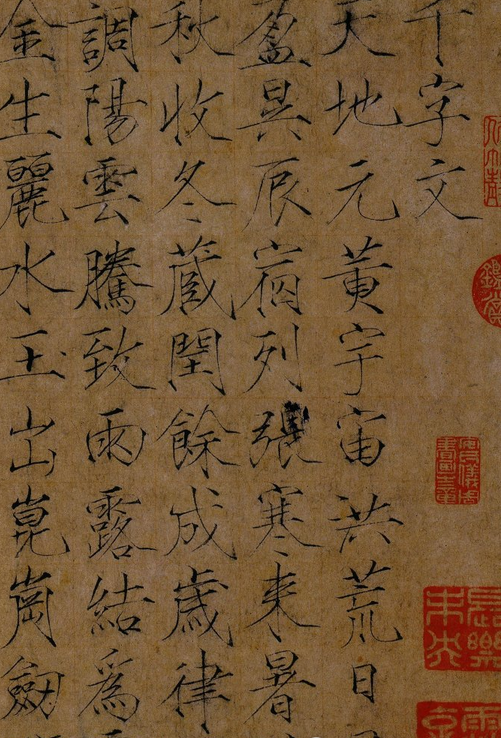 千字文
天地元黄宇宙洪荒日
盈昃辰宿列張寒来暑
秋收冬蔵閏餘成歳律
調陽雲騰致雨露結爲
金生麗水玉出崑崗劒